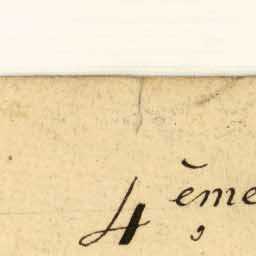 4ème,